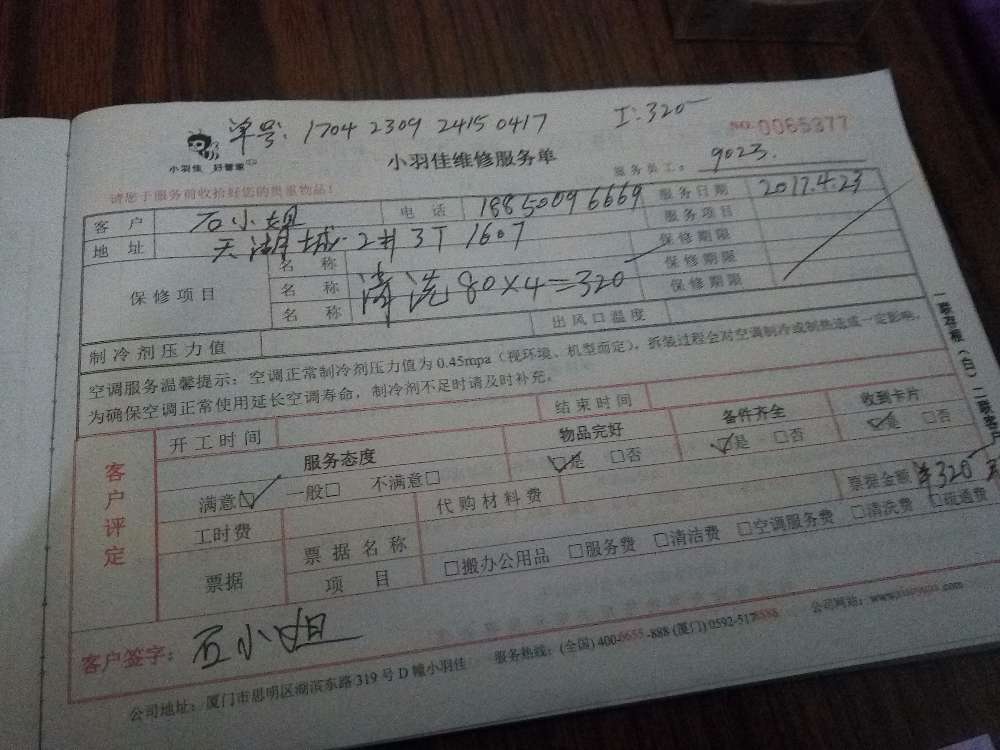 单号: 1704 2309 2415 0417 I:320
小羽佳 好管家
小羽佳维修服务单
NO:0065377
服务员工: 9023.
请您于服务前收拾好您的贵重物品!
客户 石小姐 电话 18850096669 服务日期 2017.4.23
地址 天湖城-2井3T 1607 服务项目
保修项目 名称 保修期限
名称 清洗80×4=320 保修期限
名称 保修期限
制冷剂压力值 出风口温度
空调服务温馨提示: 空调正常制冷剂压力值为0.45mpa(视环境、机型而定),拆装过程会对空调制冷或制热造成一定影响,
为确保空调正常使用延长空调寿命,制冷剂不足时请及时补充。
客户评定
开工时间 结束时间
服务态度 物品完好 备件齐全 收到卡片
满意☑ 一般□ 不满意□ ☑是 □否 ☑是 □否 ☑是 □否
工时费 代购材料费 票据金额 ¥320
票据 票据名称
项目 □搬办公用品 □服务费 □清洁费 □空调服务费 □清洗费 □疏通费
客户签字: 石小姐
公司地址: 厦门市思明区湖滨东路319号D幢小羽佳 服务热线: (全国) 400-0655-888 (厦门) 0592-5178888 公司网站:
一联存根(白) 二联客户